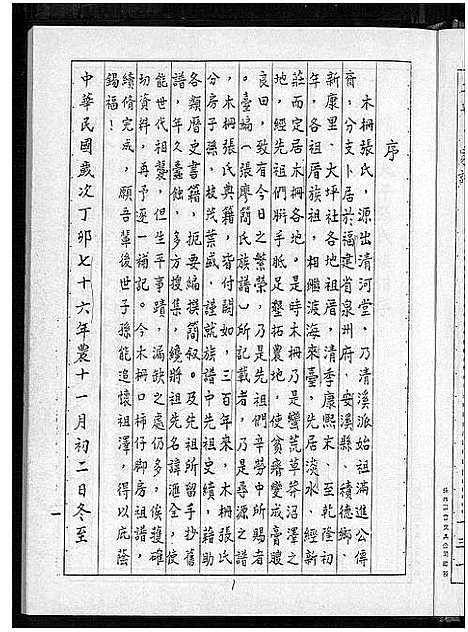 序
木柵張氏，源出清河堂，乃清溪派始祖滿進公傳
裔，分支卜居於福建省泉州府、安溪縣、積德鄉、
新康里、大坪社各地祖厝，清季康熙末、至乾隆初
年，各祖厝族祖，相繼渡海來臺，先居淡水、經新
莊而定居木柵各地。是時木柵乃是蠻荒草莽沼澤之
地，經先祖們胼手胝足墾拓農地，使貧瘠變成膏腴
良田，致有今日之繁榮，乃是先祖們辛勞中所賜者
。臺編（張廖簡氏族譜）所記載者，乃是尋源之譜
，木柵張氏典籍，皆付闕如，三百年來，木柵張氏
分房子孫，枝茂葉盛，謹就族譜中先祖史績，藉助
各類曆史書籍，扼要編撰簡叙。及先祖所留手抄舊
譜，年久蠹蝕，多方搜集，纔將祖先名諱滙全，使
能世代祖襲，但生平事蹟，漏缺之處仍多，俟獲確
切資料，再予逐一補記。今木柵口柿仔脚房祖譜，
續脩完成，願吾輩後世子孫能追懷祖澤，得以庇蔭
錫福！
中華民國歲次丁卯七十六年農十一月初二日冬至
一
1